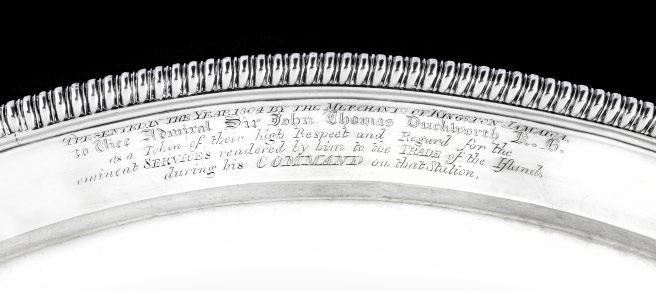 PRESENTED IN THE YEAR 1804 BY THE MERCHANTS OF KINGSTON JAMAICA,
to Vice Admiral Sir John Thomas Duckworth K.B.
as a Token of their high Respect and Regard for the
eminent SERVICES rendered by him to the TRADE of the Island,
during his COMMAND on that Station.